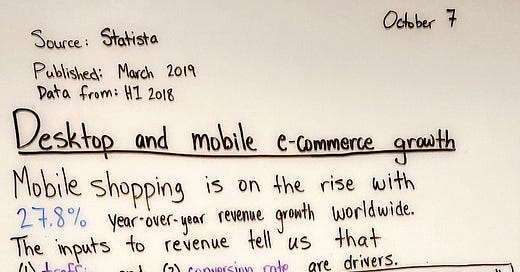 October 7
Source: Statista
Published: March 2019
Data from: H1 2018
Desktop and mobile e-commerce growth
Mobile shopping is on the rise with
27.8% year-over-year revenue growth worldwide.
The inputs to revenue tell us that
(1) and (2) conversion rate are drivers.